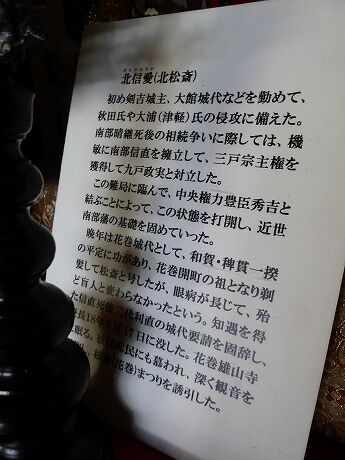 北信愛(北松斎)
初め剣吉城主、大館城代などを勤めて、
秋田氏や大浦(津軽)氏の侵攻に備えた。
南部晴継死後の相続争いに際しては、機
敏に南部信直を擁立して、三戸宗主権を
獲得して九戸政実と対立した。
この難局に臨んで、中央権力豊臣秀吉と
結ぶことによって、この状態を打開し、近世
南部藩の基礎を固めていった。
晩年は花巻城代として、和賀・稗貫一揆
の平定に功があり、花巻開町の祖となり剃
髪して松斎と号したが、眼病が長じて、殆
ど盲人と変わらなかったという。知遇を得
た信直死後一代利直の城代要請を固辞し、
長18年8月17日に没した。花巻雄山寺
眠る。
民にも慕われ、深く観音を
松斎(花巻)まつりを誘引した。